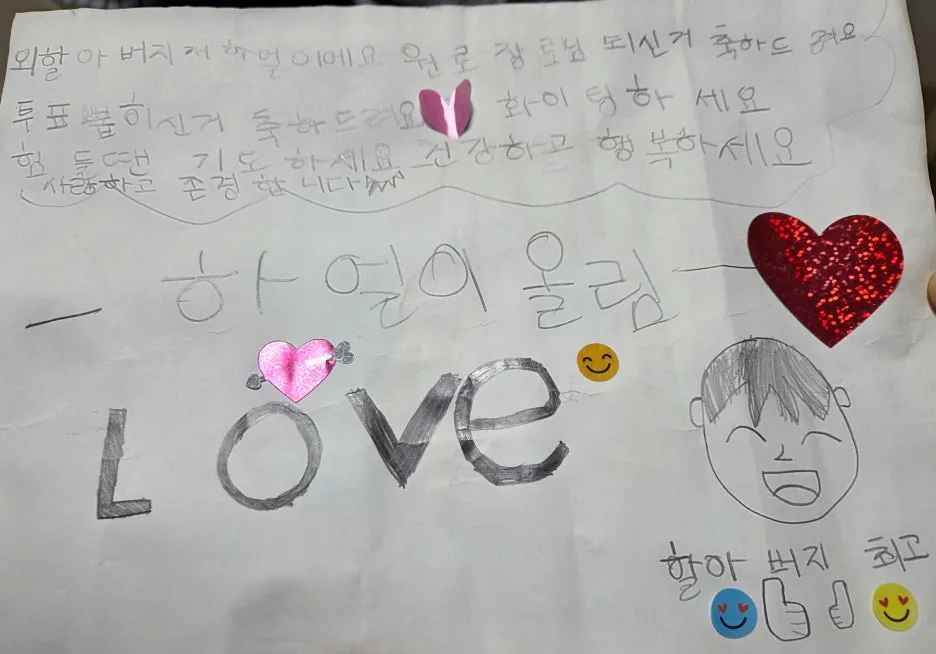 외할아버지 저 하얼이에요 원로 장로님 되신거 축하드려요
투표 뽑히신거 축하드려요 화이팅하세요
힘들땐 기도하세요 건강하고 행복하세요
사랑하고 존경합니다
- 하얼이 올림 -
LOVe
할아버지 최고